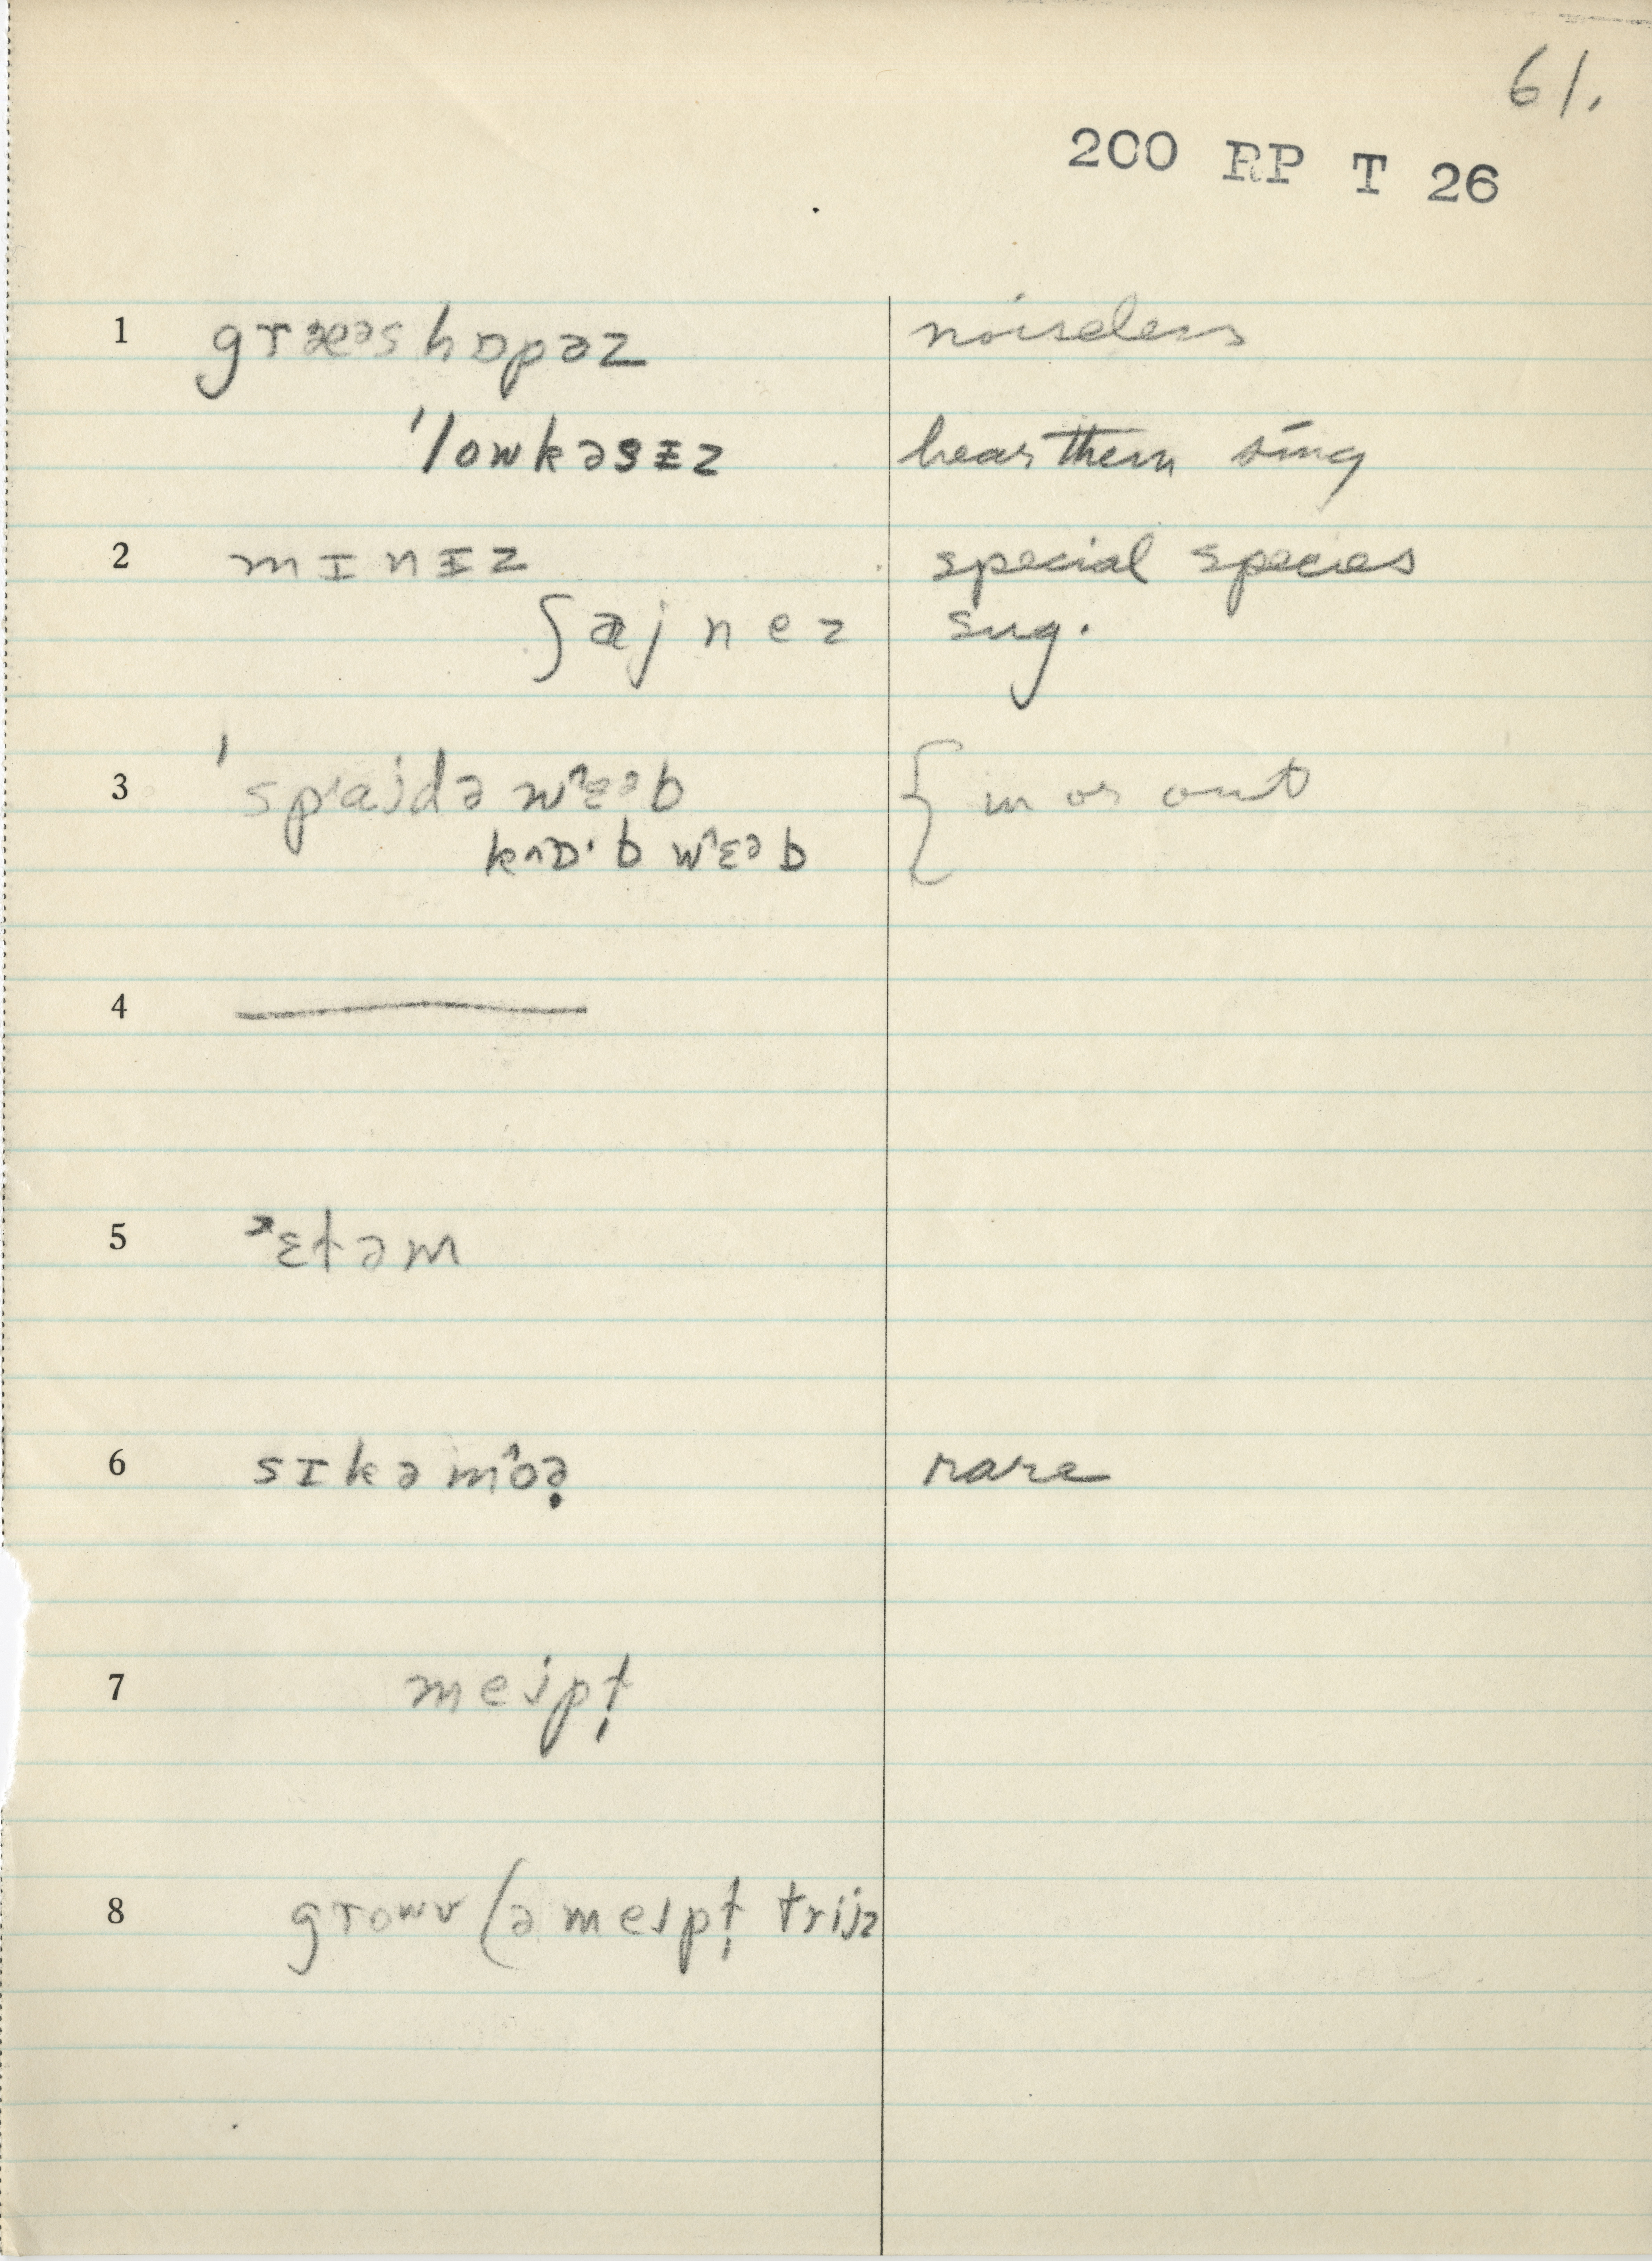 61.
200 RP T 26
1 græᵊshɒpəz noiseless
ˈlowkəsɪz hear them sing
2 mɪnɪz special species
ʃajnez sug.
3 ˈspajdə w^ɛᵊb { in or out
k^ɒ·b w^ɛᵊb
4 ——
5 ɛtəm
6 sɪkəm^oə̣ rare
7 mejpƚ̩
8 growv (ə mejpƚ̩ trijz